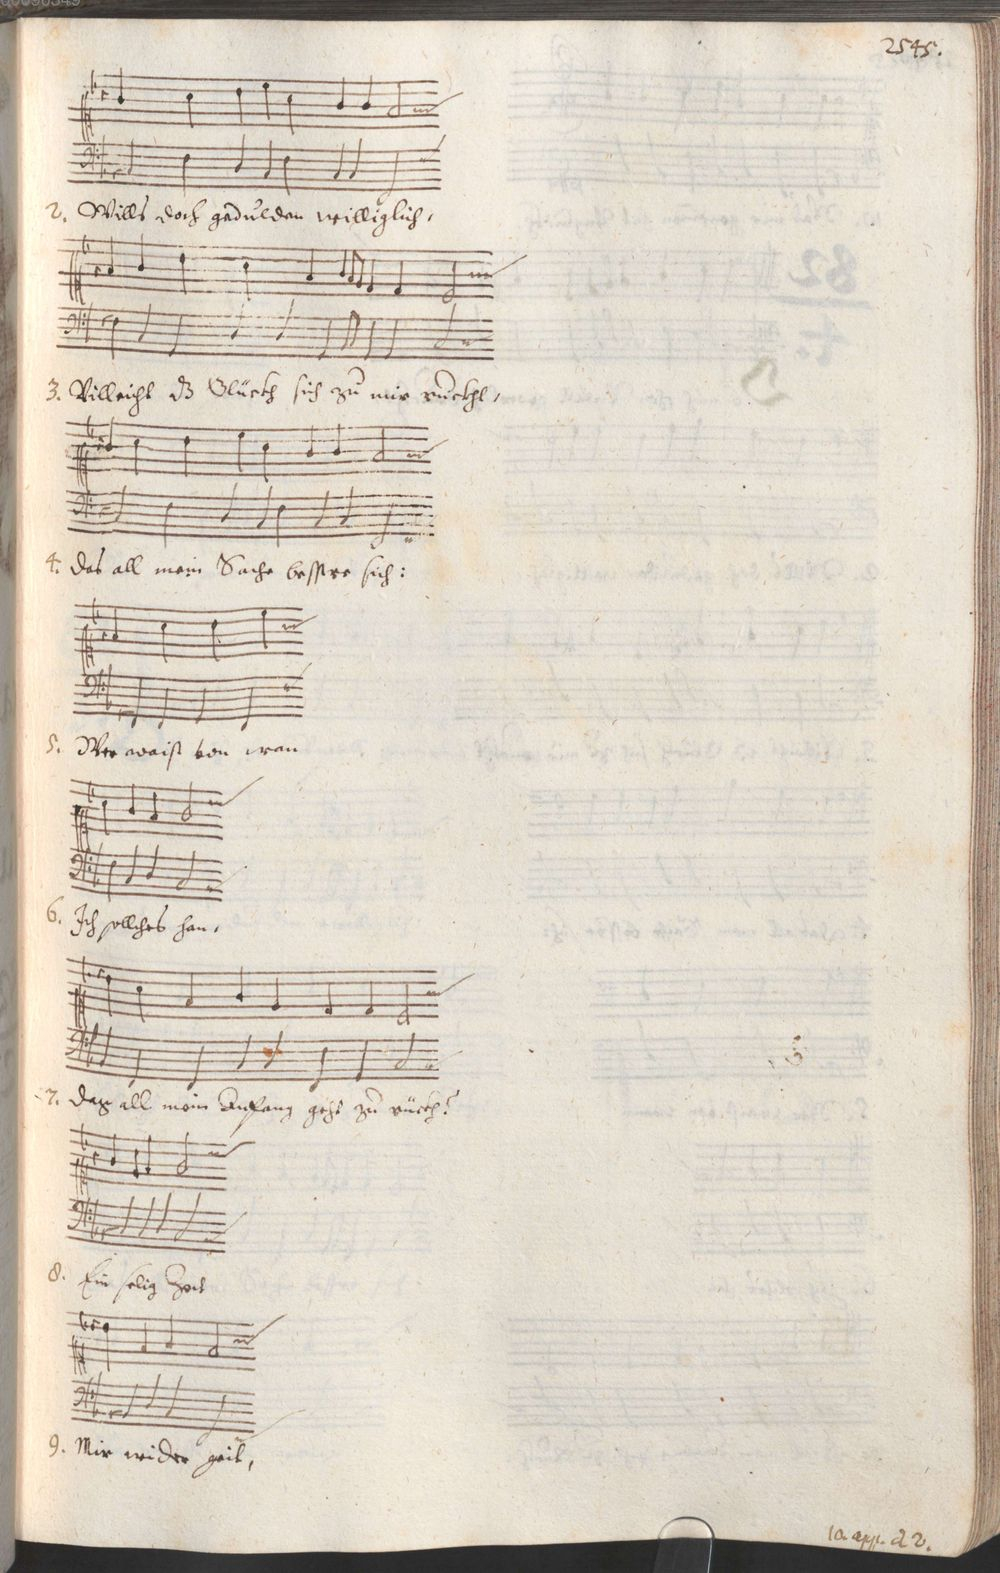 2545.
2. Wills doch gedulden williglich,
3. Villeicht dz Glückh sich zu mir ruckht,
4. das all mein Sache bessere sich:
5. Wer waist von wan
6. Ich sollches han,
7. daz all mein Anfang geht zu rückh?
8. Ein selig Zeit
9. Mir wider geit,
10. app. d 2.